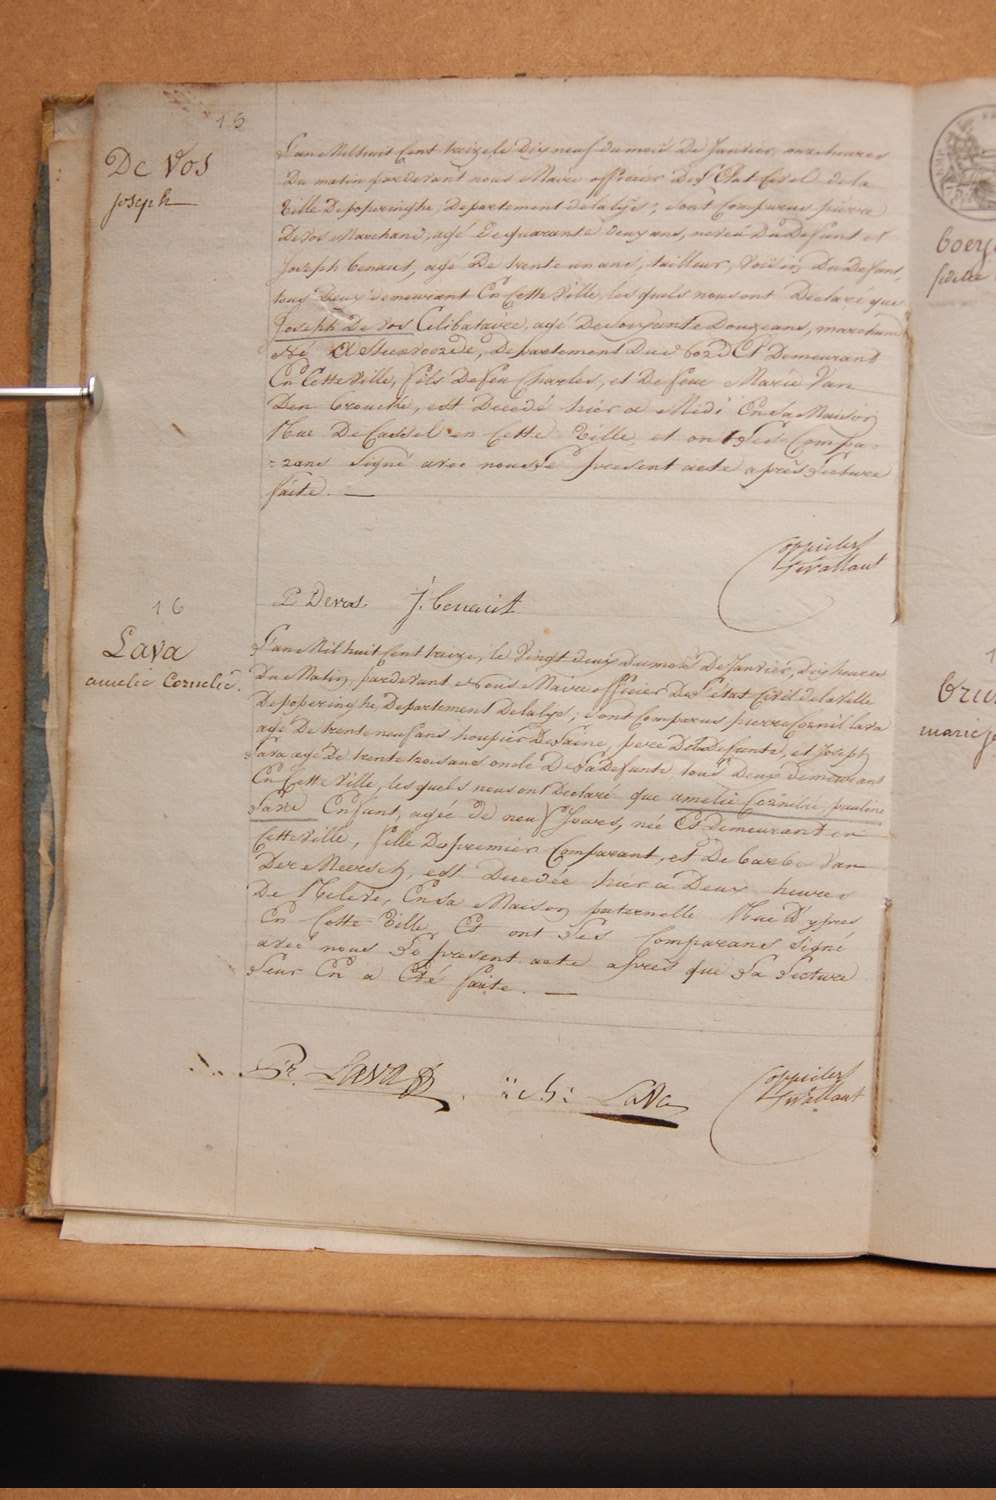 15
De Vos
joseph
L'an Mil huit Cent treize le Dix neuf du mois De Janvier, onze heures
Du matin pardevant nous Maire officier De l'Etat Civil de la
Ville De poperinghe, Departement de la lijs; sont Comparus pierre
De Vos Marchand, agé de quarante deux ans, neveu Du Defunt et
Joseph Benaut, agé De trente un ans, tailleur, Voisin Du Defunt,
tous Deux demeurant En Cette Ville, les quels nous ont Declaré que
Joseph De Vos Celibataire, agé De soixante Douze ans, marchand
Né A Steenvoorde, Departement Du Nord Et Demeurant
En Cette Ville, fils De feu Charles, et De feue Marie Van
Den Broucke, est Decedé hier a Midi En sa Maison
Rue De Cassel en Cette Ville et ont Les Compa-
-rans Signé avec nous Le present acte après Lecture
faite.
Coppieters
t'Wallant
P Devos J. Benaut
16
Lava
amelie Cornelie.
L'an Mil huit Cent treize, le Vingt deux Du mois De Janvier, Dix heures
Du Matin, pardevant Nous Maire officier De l'état Civil de la Ville
De poperinghe, Departement De la lys; sont Comparus pierre Cornil Lava
agé De trente neuf ans houpier De Laine, pere De la Defunte, et Joseph
Lava agé De trente trois ans oncle De La Defunte, tous Deux demeurant
En Cette Ville, les quels nous ont Declaré que amelie Cornelie, pauline
Lava Enfant, agée de neuf Jours, née Et Demeurant en
Cette Ville, fille Du premier Comparant, et De Barbe Van
Der Meersch, est Decedée hier a Deux heures
De Relevé, En sa Maison paternelle Rue D'ypres
En Cette Ville, Et ont Les Comparans Signé
avec nous Le present acte après que La Lecture
Leur En a Eté faite.
Lava Lava
Coppieters
t'Wallant
marie